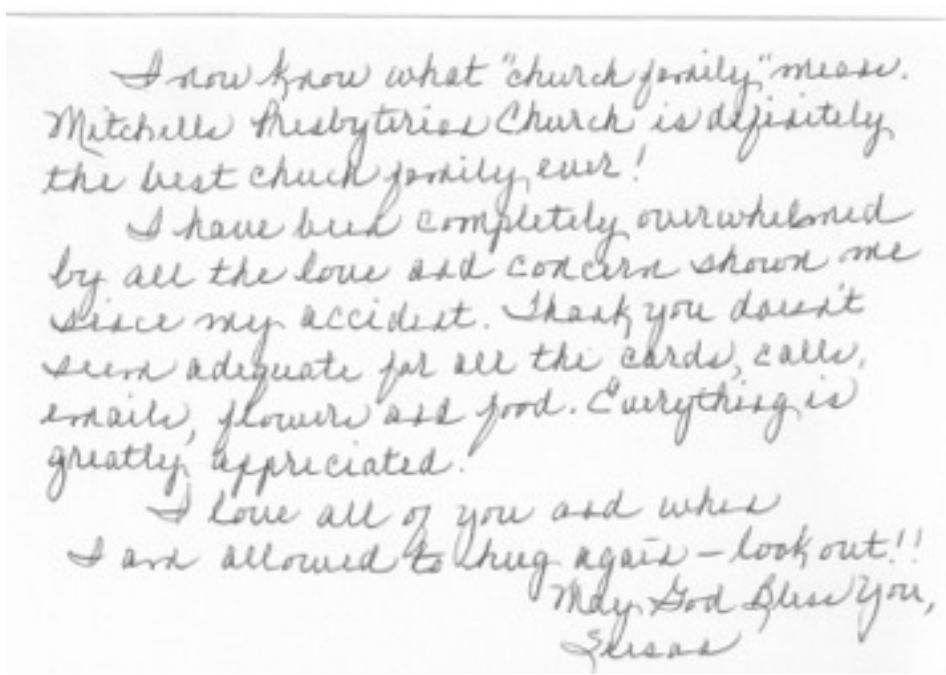 I now know what "church family" means.
Mitchells Presbyterian Church is definitely
the best chuch family ever!
I have been completely overwhelmed
by all the love and concern shown me
since my accident. Thank you doesn't
seem adequate for all the cards, calls,
emails, flowers and food. Everything is
greatly appreciated.
I love all of you and when
I am allowed to hug again – look out!!
May God Bless You,
Susan